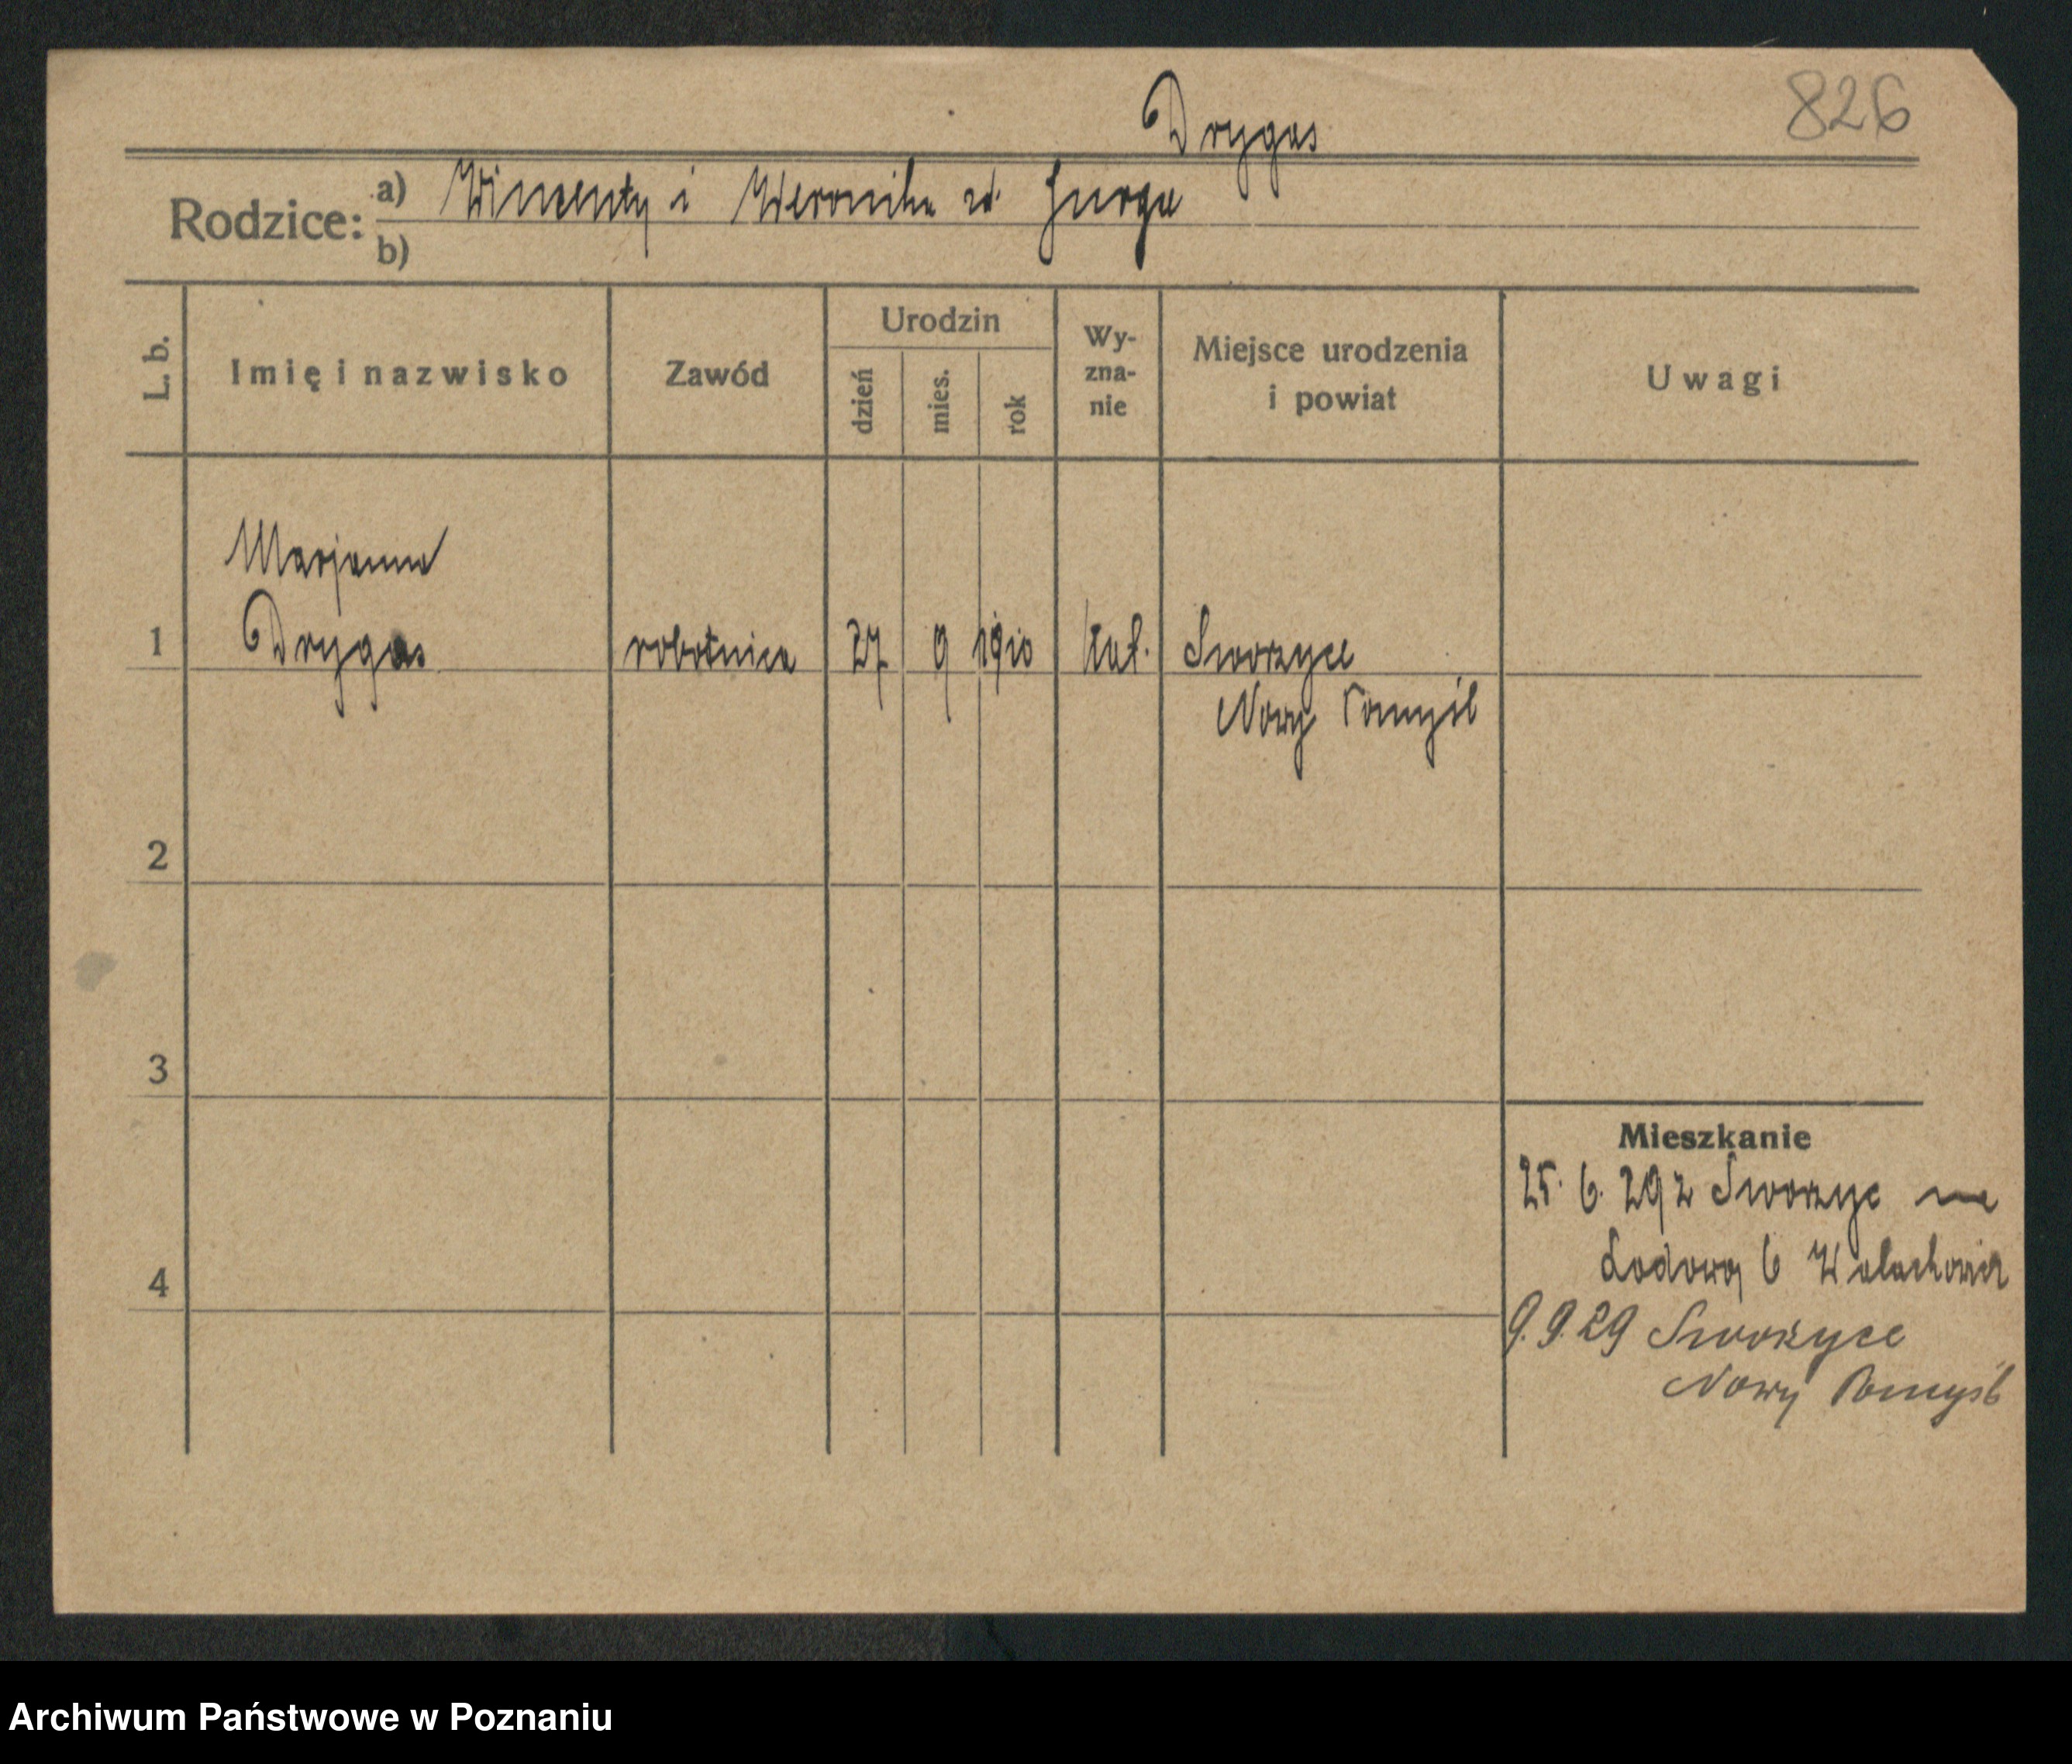 826
Drygas
Rodzice: a) Wincenty i Weronika zd. Jurga
b)
L. b.
Imię i nazwisko
Zawód
Urodzin
dzień
mies.
rok
Wy-
zna-
nie
Miejsce urodzenia
i powiat
Uwagi
Marjanna
1 Drygas robotnica 27 9 1910 kat. Sworzyce
Nowy Tomyśl
2
3
4
Mieszkanie
25. 6. 29 z Sworzyc na
Lodową 6
9.9.29 Sworzyce
Nowy Tomyśl
Archiwum Państwowe w Poznaniu